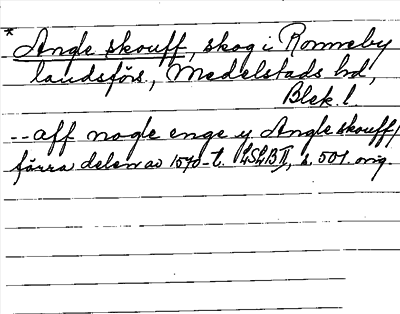 * Angle skouff, skog i Ronneby
landsförs., Medelstads hd,
Blek. l.
-- aff nogle enge y Angle skouff/
förra delen av 1570-t. LSLB II, s. 501. orig.